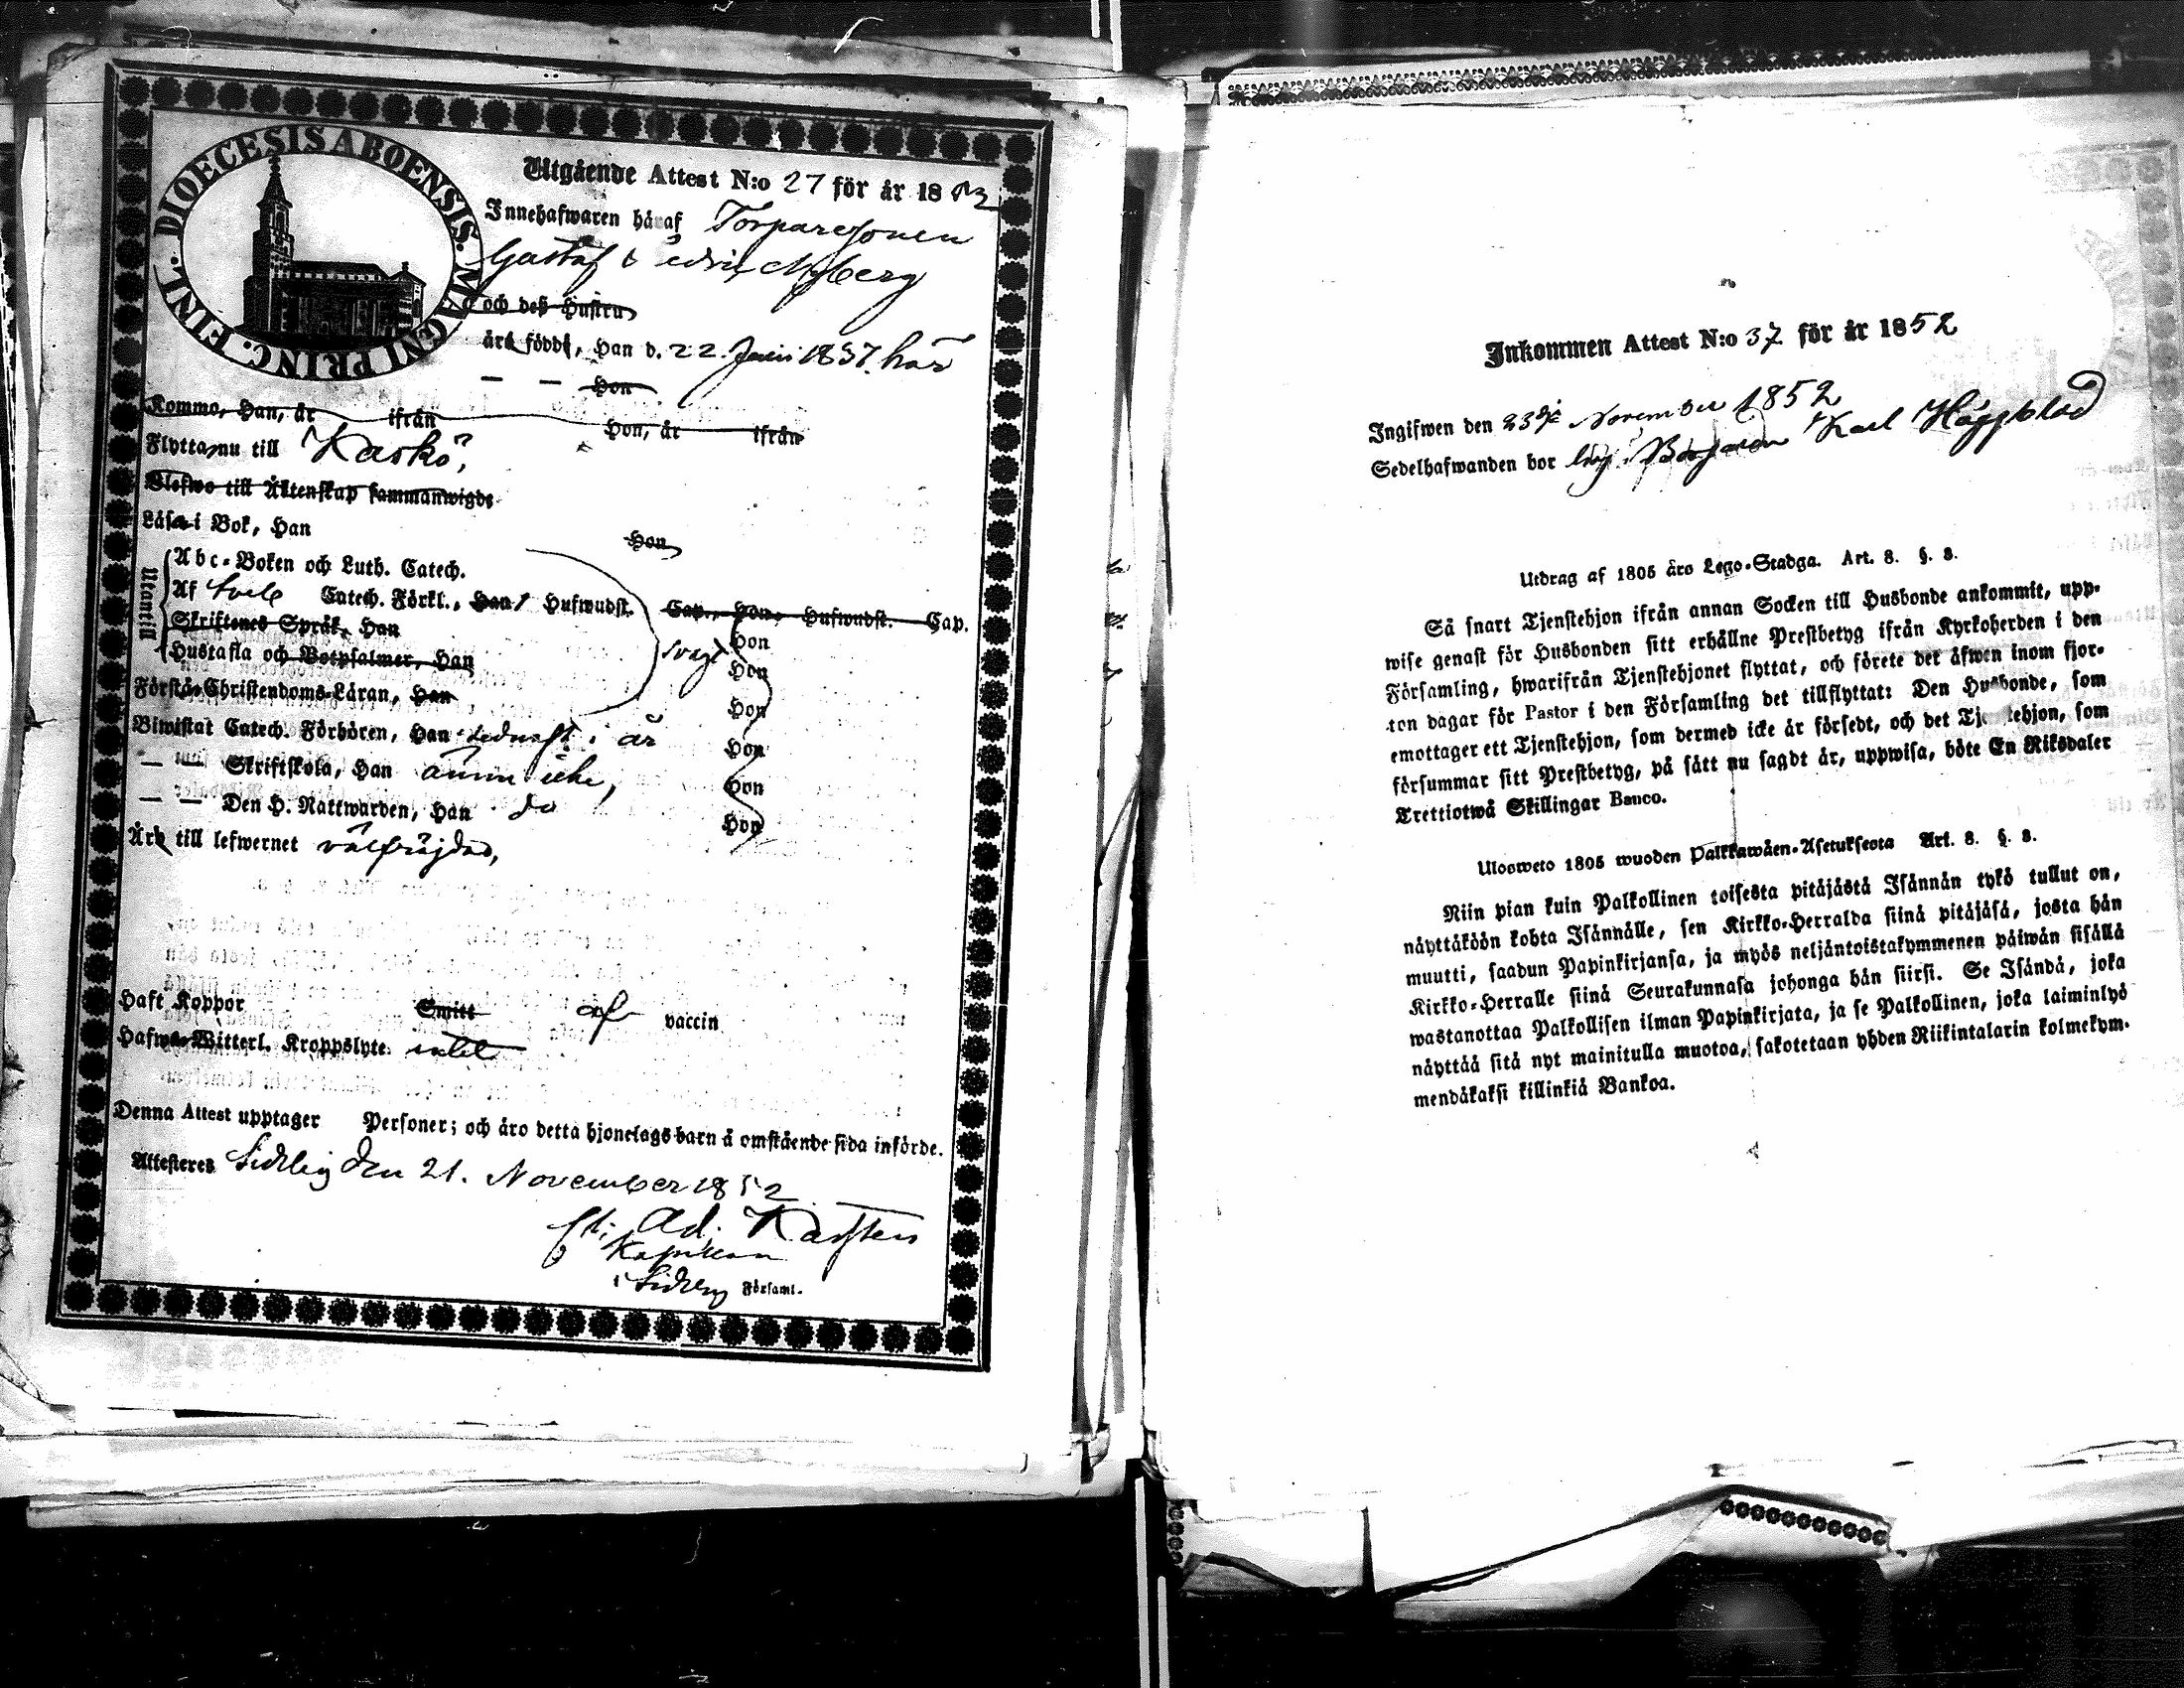 DIOECESIS ABOENSIS. MAGNI PRINC. FINL.
Utgående Attest N:o 27 för år 1852
Innehafwaren häraf Torparesonen
Gustaf Nyberg
och deß Hustru
äro födde, Han d. 22 Juni 1837. här
— — Hon
Kommo, Han, år ifrån Hon, år ifrån
Flytta nu till Kaskö,
Blefwo till Äktenskap sammanwigde
Läsa i Bok, Han Hon
Utantill
Abc-Boken och Luth. Catech.
Af Catech. Förkl., Han 1 Hufwudst. Cap., Hon, Hufwudst. Cap.
Skriftenes Språk, Han Hon
Hustafla och Botpsalmer, Han svagt Hon
Förstå Christendoms-Läran, Han Hon
Biwistat Catech. Förhören, Han sednast i år Hon
— — Skriftskola, Han ännu icke, Hon
— — Den H. Nattwarden, Han do Hon
Äro till lefwernet välfräjdad,
Haft Koppor Smitt af vaccin
Hafwa Witterl. Kroppslyte intet
Denna Attest upptager Personer; och äro detta hjonelags barn å omstående sida införde.
Attesteres Sideby den 21. November 1852
Ad. Karsten
Kapellan
i Sideby Församl.
Inkommen Attest N:o 37 för år 1852
Ingifwen den 23dje November 1852
Sedelhafwanden bor hos Borgaren Karl Häggblad
Utdrag af 1805 års Lego-Stadga. Art. 8. §. 3.
Så snart Tjenstehjon ifrån annan Socken till Husbonde ankommit, upp-
wise genast för Husbonden sitt erhållne Prestbetyg ifrån Kyrkoherden i den
Församling, hwarifrån Tjenstehjonet flyttat, och förete det äfwen inom fjor-
ton dagar för Pastor i den Församling det tillflyttat: Den Husbonde, som
emottager ett Tjenstehjon, som dermed icke är försedt, och det Tjenstehjon, som
försummar sitt Prestbetyg, på sätt nu sagdt är, uppwisa, böte En Riksdaler
Trettiotwå Skillingar Banco.
Ulosweto 1805 wuoden Palkkawäen-Asetuksesta Art. 8. §. 3.
Niin pian kuin Palkollinen toisesta pitäjästä Isännän tykö tullut on,
näyttäköön kohta Isännälle, sen Kirkko-Herralda siinä pitäjäsä, josta hän
muutti, saadun Papinkirjansa, ja myös neljäntoistakymmenen päiwän sisällä
Kirkko-Herralle siinä Seurakunnasa johonga hän siirsi. Se Isändä, joka
wastanottaa Palkollisen ilman Papinkirjata, ja se Palkollinen, joka laiminlyö
näyttää sitä nyt mainitulla muotoa, sakotetaan yhden Riikintalarin kolmekym-
mendäkaksi killinkiä Bankoa.